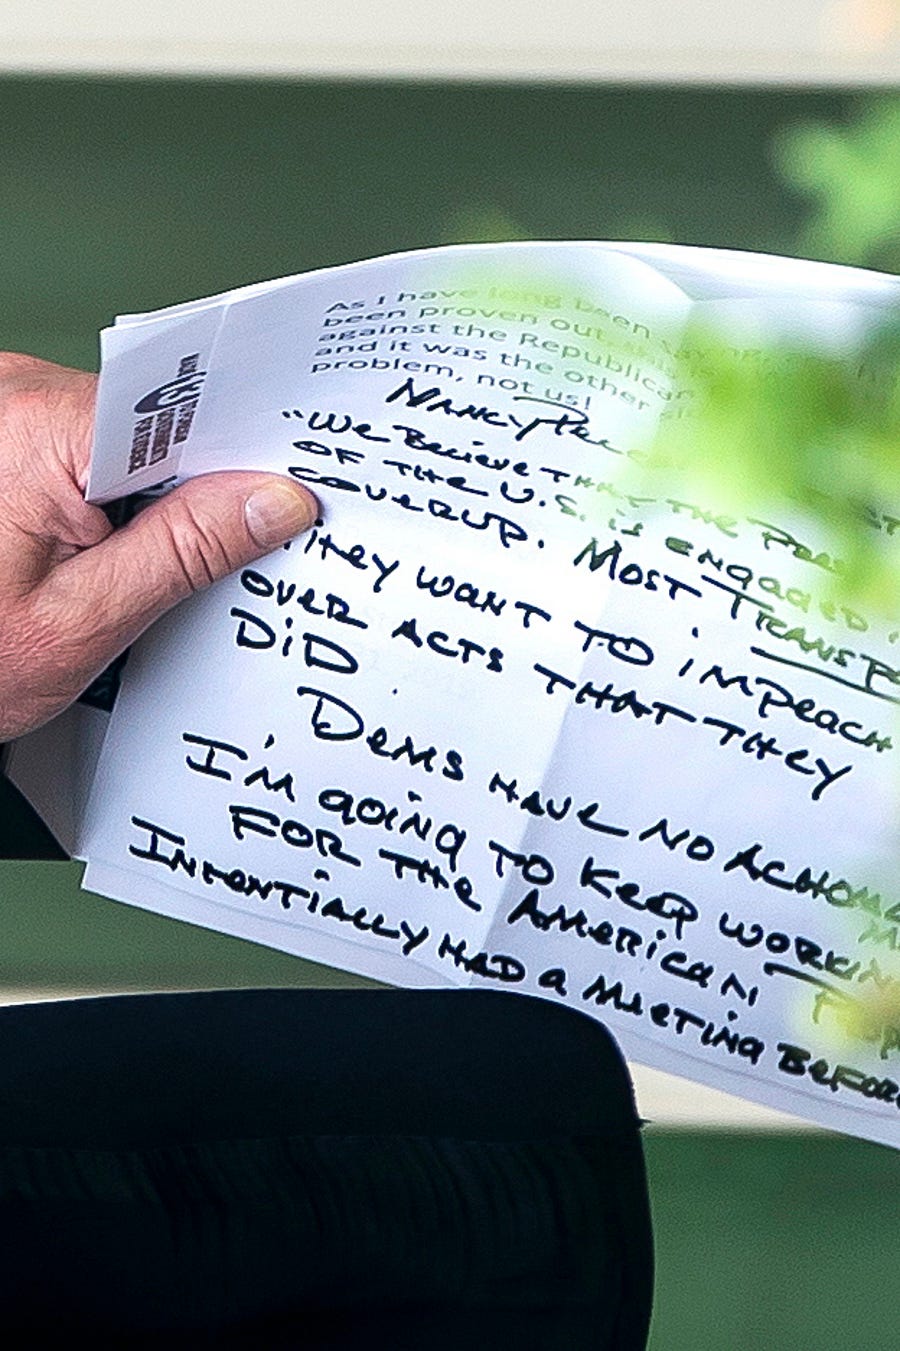 As I have long been
been proven out
against the Republican
and it was the other
problem, not us!
NANCY
"We Believe THAT THE Pres
OF THE U.S. is ENGAGED
COVERUP. MOST TRANSP
THEY WANT TO IMPEACH
OVER ACTS THAT THEY
DiD
Dems HAVE NO
I'M GOING TO KEEP WORKIN
FOR THE AMERICAN
INTENTIALLY HAD A MEETING BEFORE